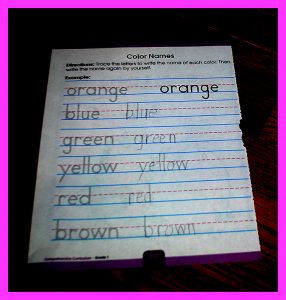 Color Names
Directions: Trace the letters to write the name of each color. Then
write the name again by yourself.
Example:
orange orange
blue blue
green green
yellow yellow
red red
brown brown
Comprehensive Curriculum - Grade 1